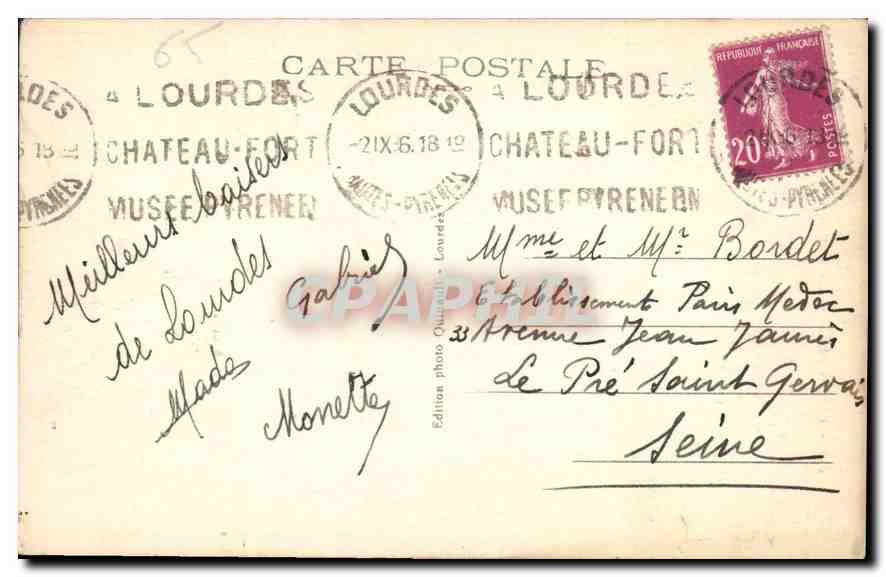 65
CARTE POSTALE
A LOURDES
CHATEAU-FORT
MUSEE PYRENEEN
LOURDES
-2IX-6.18 10
HAUTES-PYRENEES
A LOURDES
CHATEAU-FORT
MUSEE PYRENEEN
REPUBLIQUE FRANÇAISE
20
POSTES
Meilleurs baisers
de Lourdes
Mado
Gabriel
Monette
Edition photo Quinault - Lourdes
Mme et Mr Bordet
Etablissement Paris Medoc
33 Avenue Jean Jaurès
Le Pré Saint Gervais
Seine
CPAPHIL